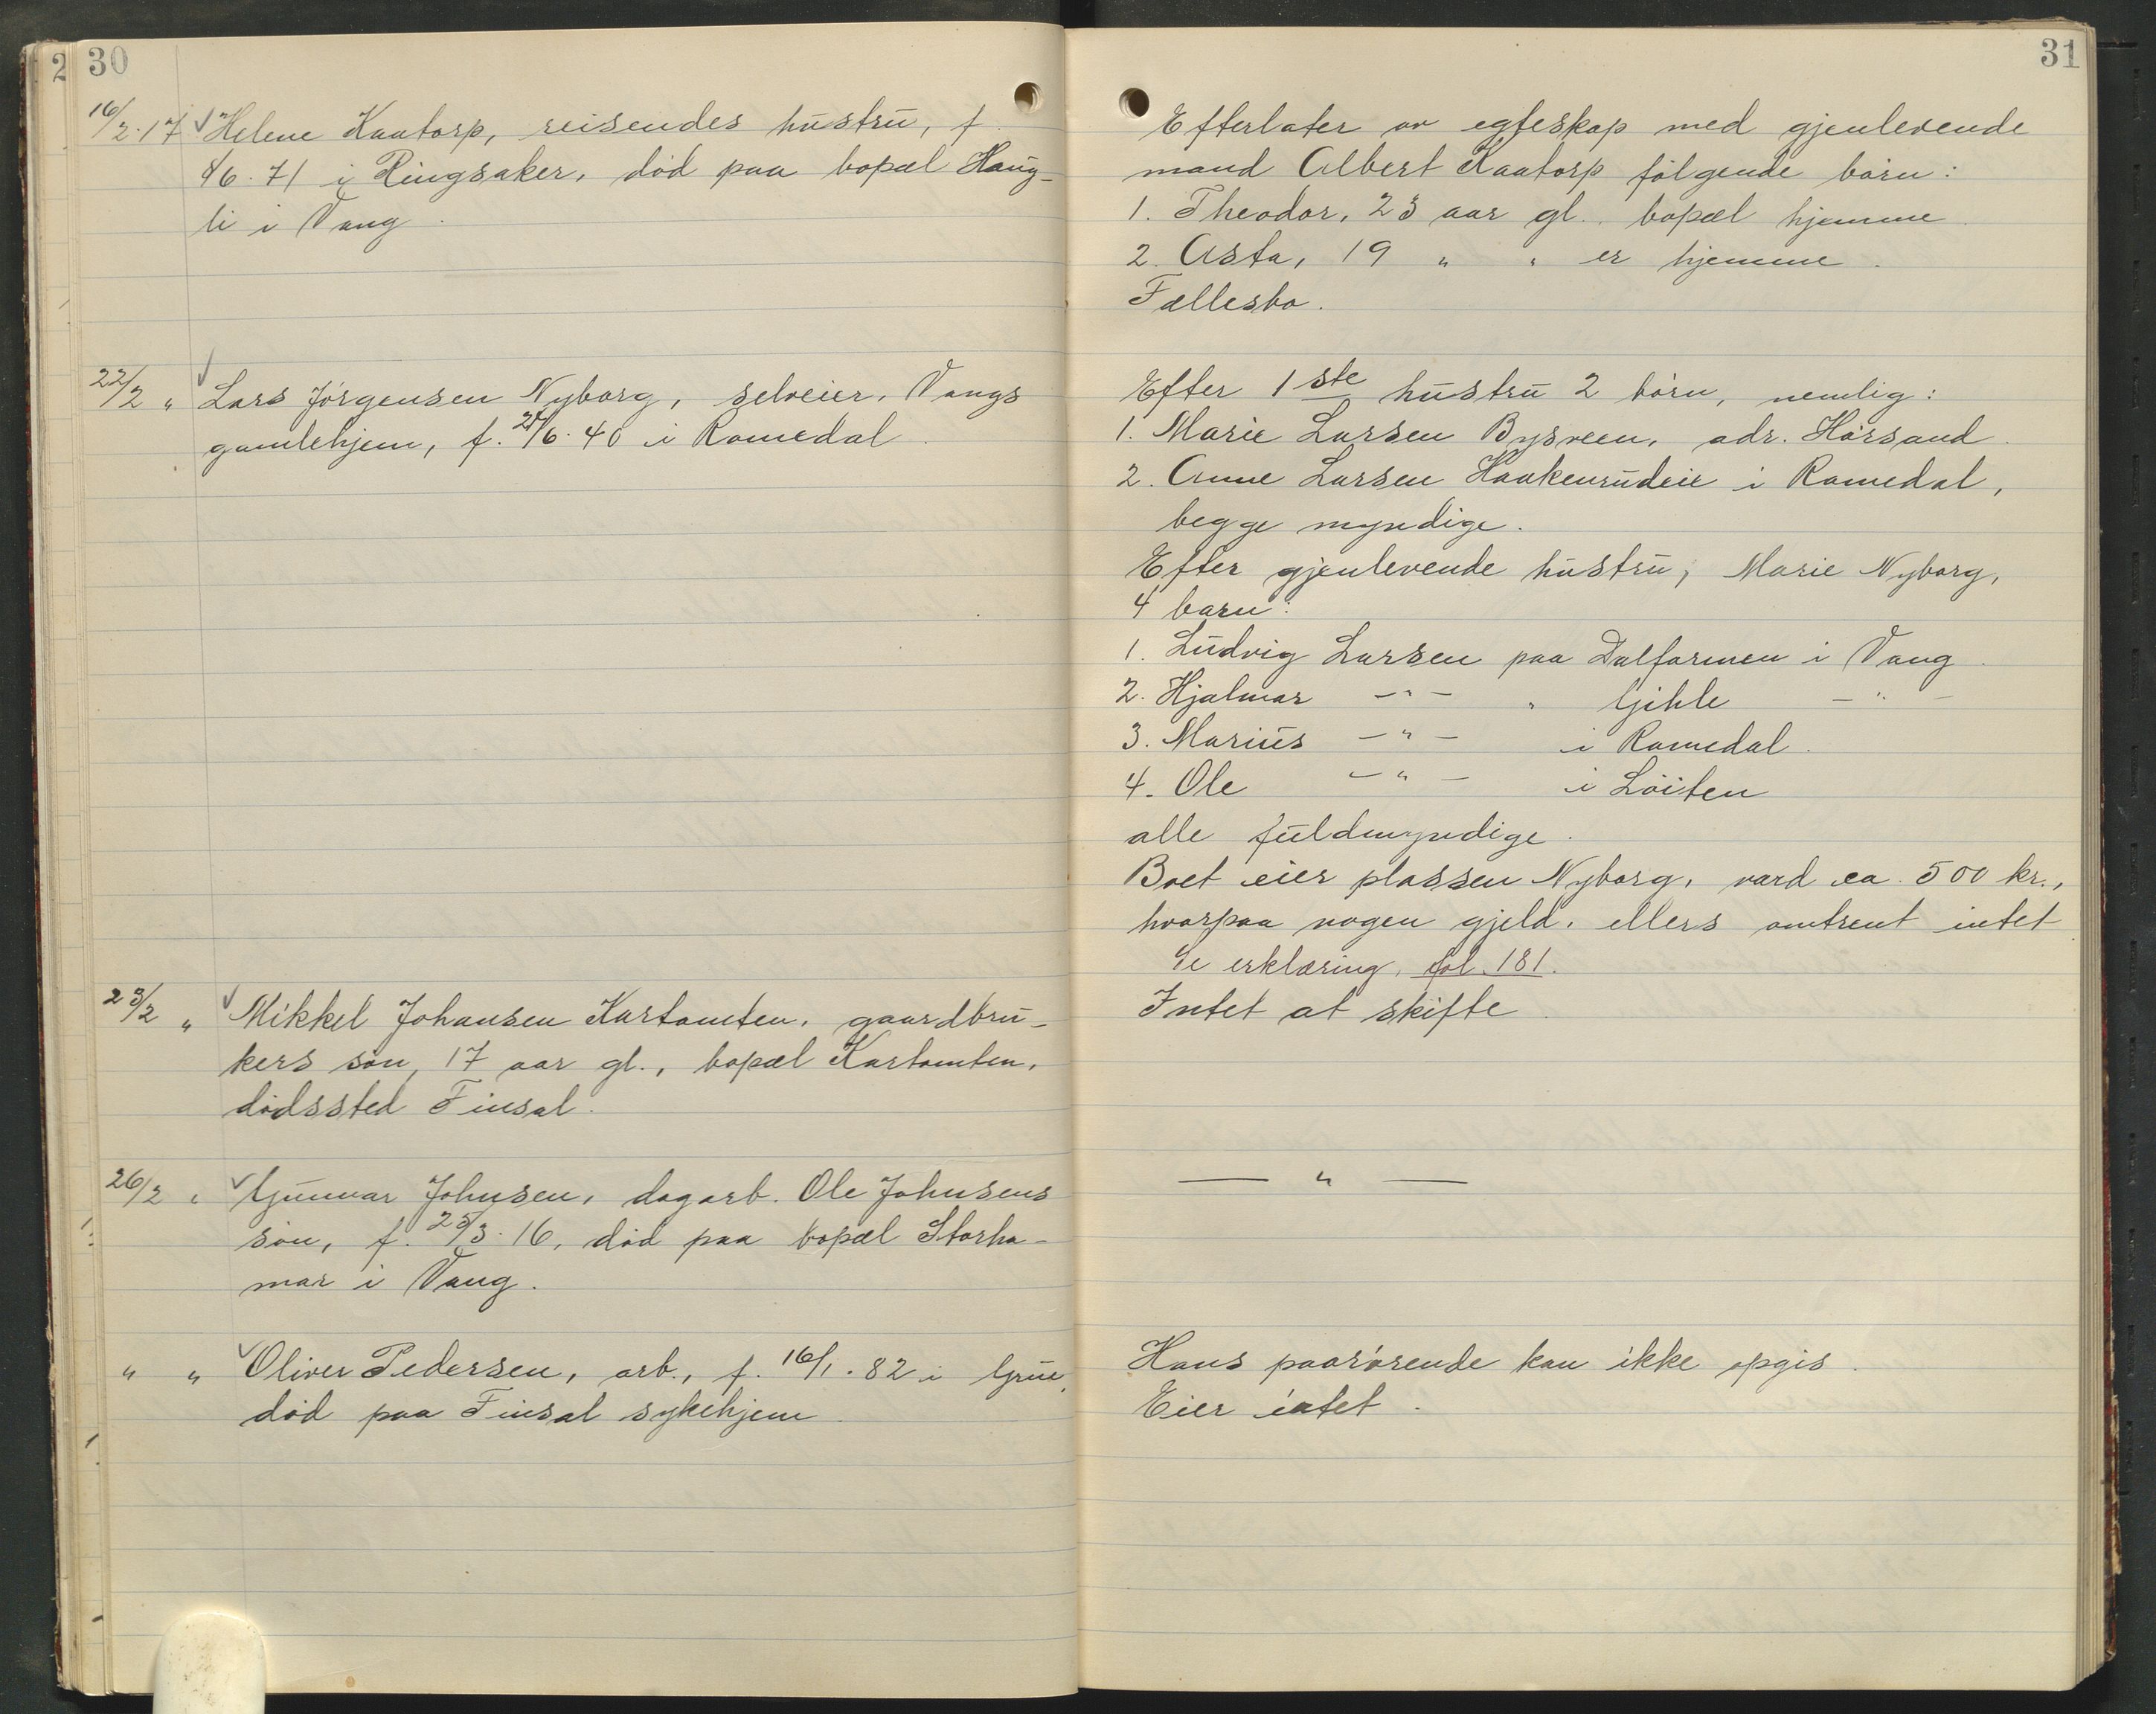 2
30
16/2.17 Helene Kaatorp, reisendes hustru, f.
4/6.71 i Ringsaker, död paa bopæl Haug-
li i Vang.
22/2 " Lars Jörgensen Nyborg, selveier, Vangs
gamlehjem, f. 24/6.40 i Romedal.
23/2 " Mikkel Johansen Kartomten, gaardbru-
kers sön, 17 aar gl., bopæl Kartomten,
dödssted Finsal.
26/2 " Gunnar Johnsen, dagarb. Ole Johnsens
sön, f. 25/3.16, död paa bopæl Storha-
mar i Vang.
" " Oliver Pedersen, arb., f. 16/1.82 i Grue,
död paa Finsal sykehjem.
31
Efterlater av egteskap med gjenlevende
mand Albert Kaatorp fölgende börn:
1. Theodor, 23 aar gl. bopæl hjemme.
2. Asta, 19 " " er hjemme.
Fællesbo.
Efter 1ste hustru 2 börn, nemlig:
1. Marie Larsen Bysveen, adr. Hörsand.
2. Anne Larsen Haakenrudeie i Romedal,
begge myndige.
Efter gjenlevende hustru, Marie Nyborg,
4 barn:
1. Ludvig Larsen paa Dalfarmen i Vang.
2. Hjalmar - " - " Gihle - " -
3. Marius - " - i Romedal.
4. Ole - " - i Löiten
alle fuldmyndige.
Boet eier plassen Nyborg, værd ca. 500 kr.,
hvorpaa nogen gjeld, ellers omtrent intet.
Se erklæring, fol. 181.
Intet at skifte.
— " —
Hans paarörende kan ikke opgis.
Eier intet.